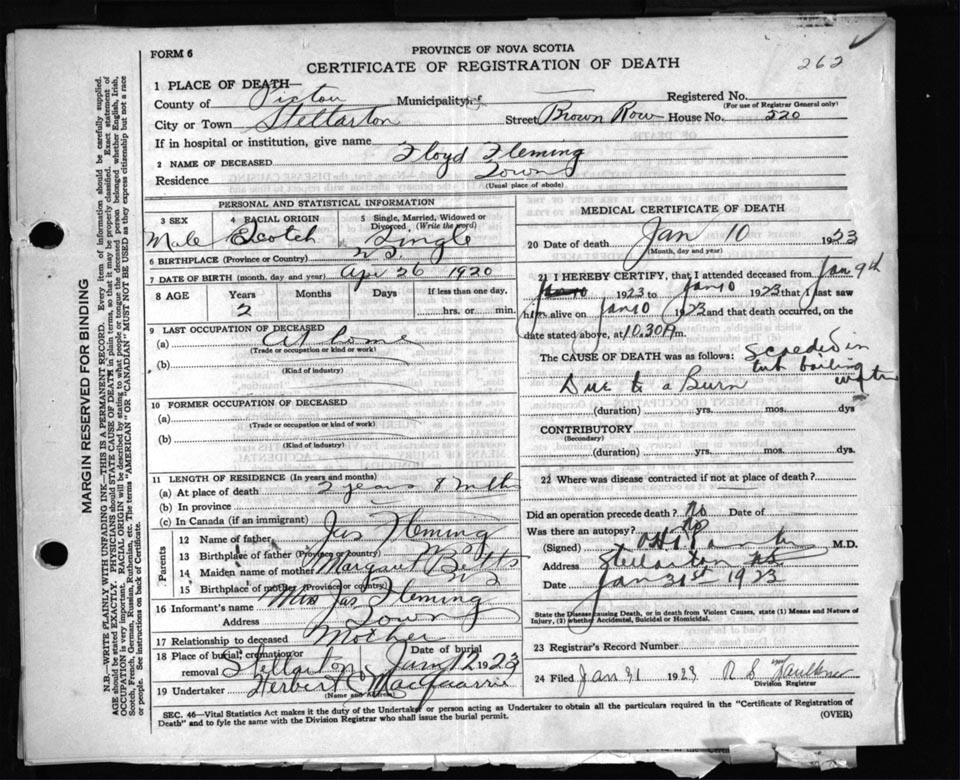 FORM 6
PROVINCE OF NOVA SCOTIA
CERTIFICATE OF REGISTRATION OF DEATH
262
1 PLACE OF DEATH—
County of Pictou Municipality of — Registered No.
(For use of Registrar General only)
City or Town Stellarton Street Brown Row House No. 520
If in hospital or institution, give name
2 NAME OF DECEASED Floyd Fleming
Residence Town
(Usual place of abode)
PERSONAL AND STATISTICAL INFORMATION
3 SEX 4 RACIAL ORIGIN 5 Single, Married, Widowed or Divorced (Write the word)
Male Scotch Single
6 BIRTHPLACE (Province or Country) N S
7 DATE OF BIRTH (month, day and year) Apr 26 1920
8 AGE Years Months Days If less than one day,
2 hrs. or min.
9 LAST OCCUPATION OF DECEASED
(a) At home
(Trade or occupation or kind or work)
(b)
(Kind of industry)
10 FORMER OCCUPATION OF DECEASED
(a)
(Trade or occupation or kind of work)
(b)
(Kind of industry)
11 LENGTH OF RESIDENCE (In years and months)
(a) At place of death 2 years 8 mths
(b) In province
(c) In Canada (if an immigrant)
Parents
12 Name of father Jas Fleming
13 Birthplace of father (Province or country) N S
14 Maiden name of mother Margaret Betts
15 Birthplace of mother (Province or country) N S
16 Informant's name Mrs Jas Fleming
Address Town
17 Relationship to deceased Mother
18 Place of burial, cremation or removal Stellarton Date of burial Jan 12 1923
19 Undertaker Herbert MacQuarrie
(Name and address)
MEDICAL CERTIFICATE OF DEATH
20 Date of death Jan 10 1923
(Month, day and year)
21 I HEREBY CERTIFY, that I attended deceased from Jan 9th
1923 to Jan 10 1923 that I last saw
him alive on Jan 10 1923 and that death occurred, on the
date stated above, at 10.30 P m.
The CAUSE OF DEATH was as follows: Scalded in
tub boiling water
Due to a Burn
(duration) yrs. mos. dys
CONTRIBUTORY
(Secondary)
(duration) yrs. mos. dys.
22 Where was disease contracted if not at place of death?
Did an operation precede death? No Date of
Was there an autopsy? No
(Signed) M.D.
Address Stellarton N S
Date Jan 31st 1923
State the Disease causing Death, or in death from Violent Causes, state (1) Means and Nature of Injury, (2) whether Accidental, Suicidal or Homicidal.
23 Registrar's Record Number
24 Filed Jan 31 1923 R S Faulkner
Division Registrar
SEC. 46—Vital Statistics Act makes it the duty of the Undertaker or person acting as Undertaker to obtain all the particulars required in the "Certificate of Registration of
Death" and to fyle the same with the Division Registrar who shall issue the burial permit. (OVER)
MARGIN RESERVED FOR BINDING
N.B.—WRITE PLAINLY WITH UNFADING INK—THIS IS A PERMANENT RECORD. Every item of information should be carefully supplied.
AGE should be stated EXACTLY. PHYSICIANS should STATE CAUSE OF DEATH in plain terms, so that it may be properly classified. Exact statement of
OCCUPATION is very important. RACIAL ORIGIN will be described by stating to what people or tongue the deceased person belonged whether English, Irish,
Scotch, French, German, Russian, Ruthenian, etc. The terms "AMERICAN" OR "CANADIAN" MUST NOT BE USED as they express citizenship but not a race
or people. See instructions on back of Certificate.